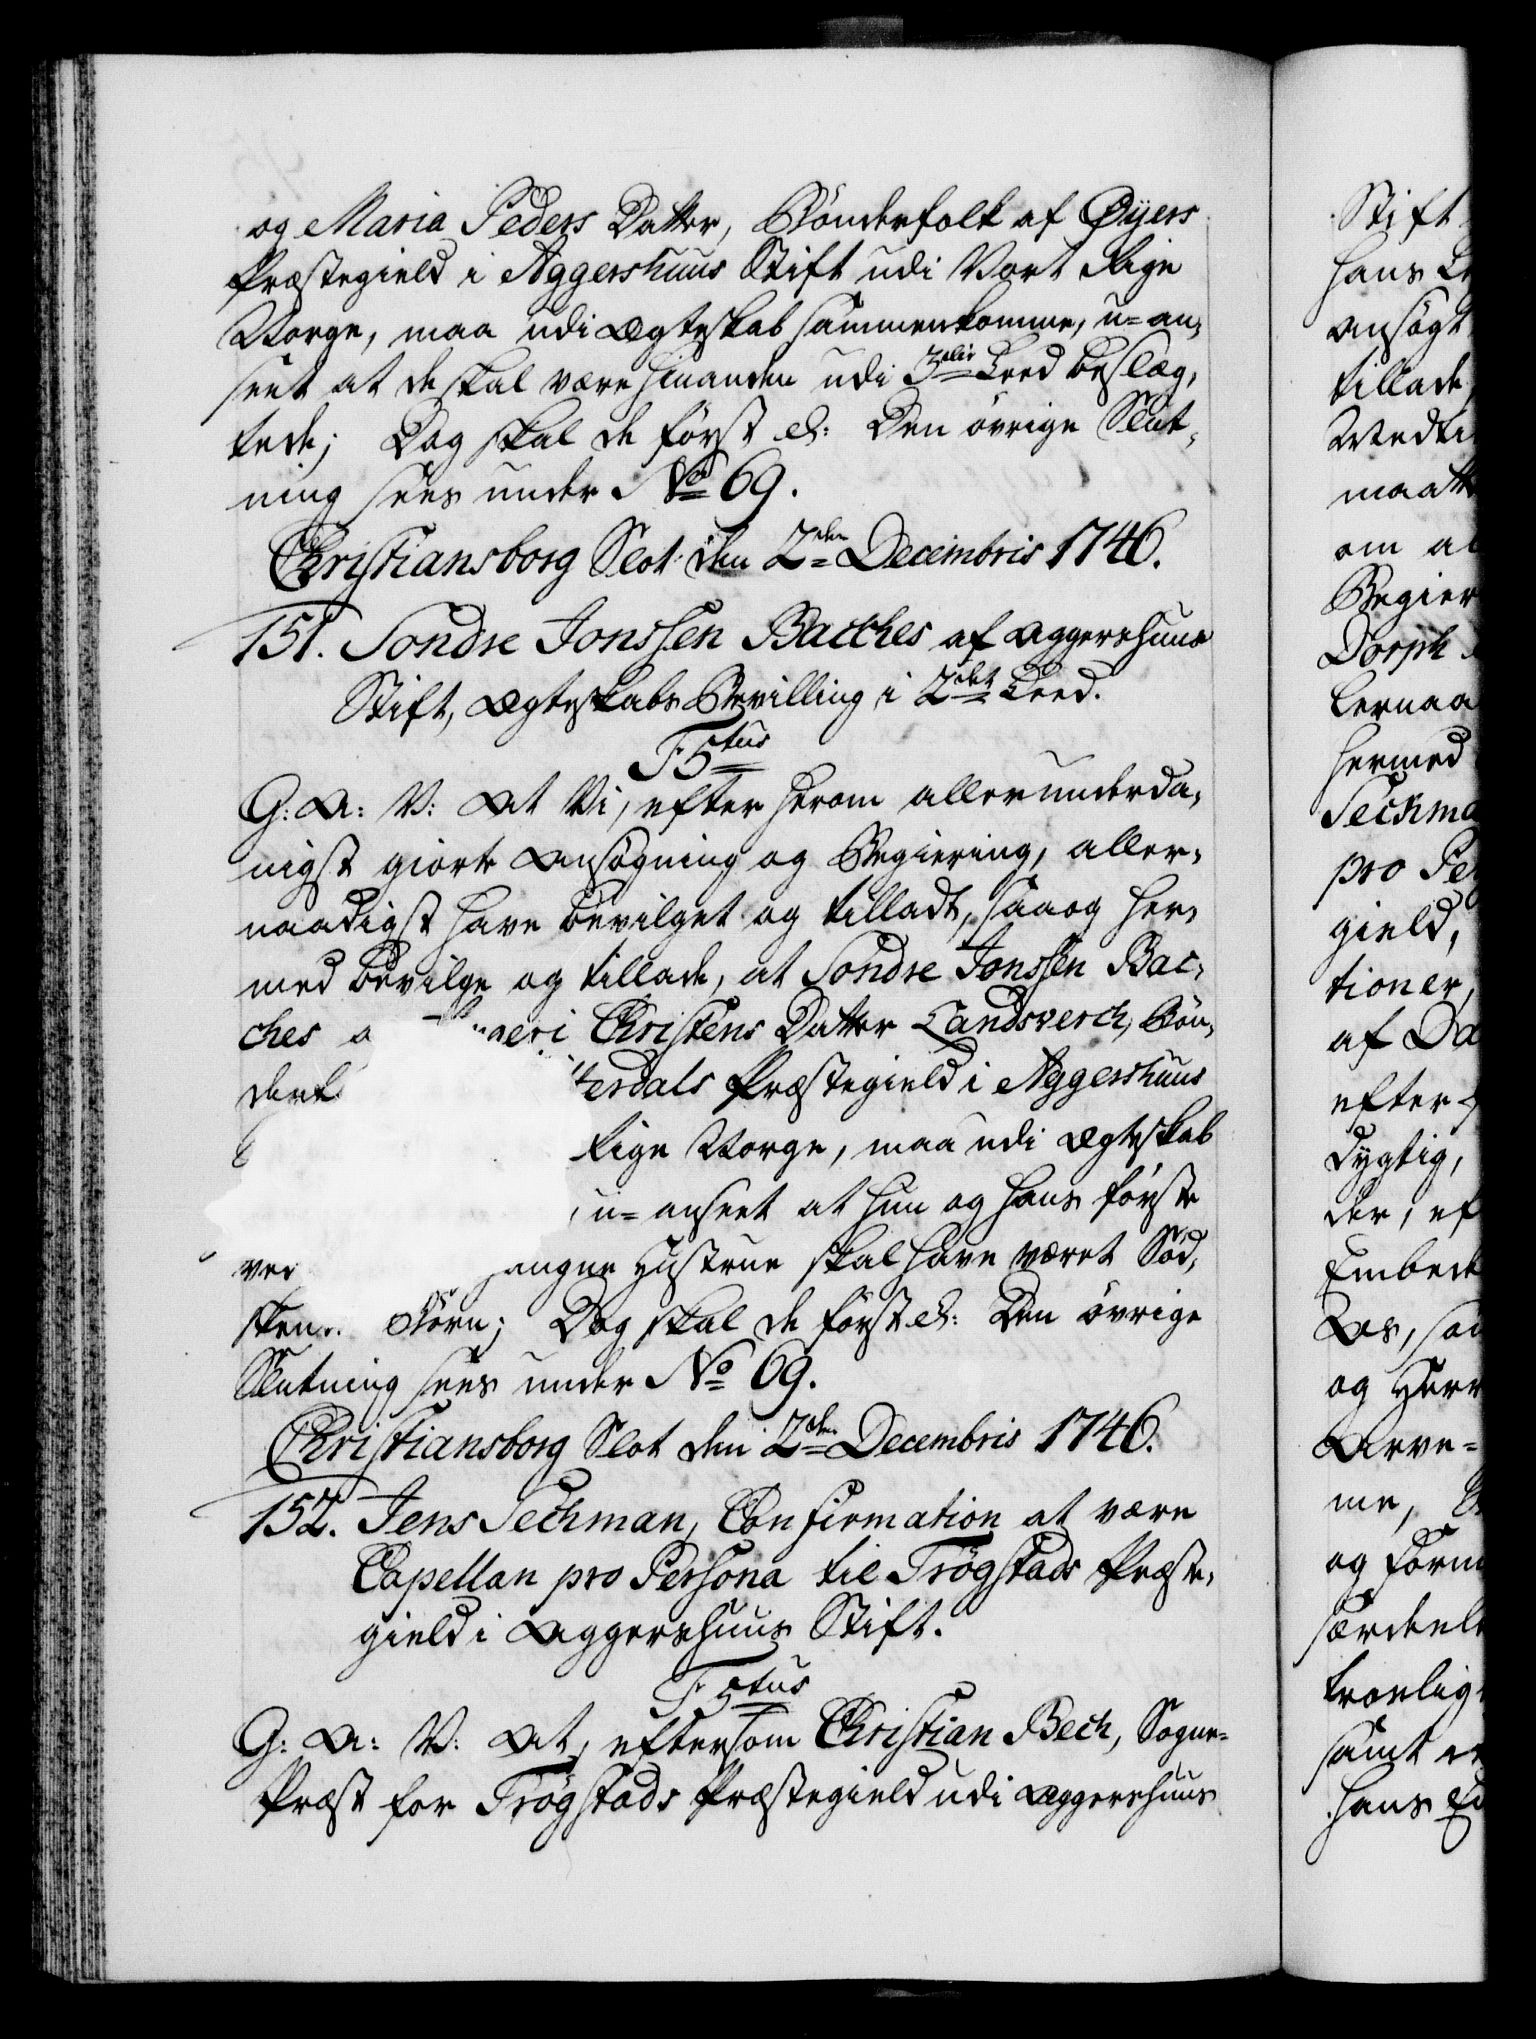 og Maria Peders Datter, Bönderfolk af Øyers
Præstegield i Aggershuus Stift udi Vort Rige
Norge, maa udi Ægteskab sammenkomme, u-an,
seet at de skal være hinanden udi 3die Leed beslæg,
tede; Dog skal de först &: Den övrige Slut,
ning sees under No 69.
Christiansborg Slot den 2den Decembris 1746.
151. Sondre Jonssen Bacches af Aggershuus
Stift, Ægteskabs Bevilling i 2det Leed.
F 5tus
G: A: V: At Vi, efter herom allerunderda,
nigst giorte Ansögning og Begiering, aller,
naadigst have bevilget og tilladt, saa og her,
med bevilge og tillade, at Sondre Jonssen Bac,
ches Christens Datter Landsverch, Bön,
terdals Præstegield i Aggershuus
Rige Norge, maa udi Ægteskab
, u-anseet at hun og hans förste
gangne Hustrue skal have været Söd,
sken Börn; Dog skal de först &: Den övrige
Slutning sees under No 69.
Christiansborg Slot den 2den Decembris 1746.
152. Jens Sechman, Confirmation at være
Capellan pro Persona til Trögstads Præste,
gield i Aggershuus Stift.
F 5tus
G: A: V: At, eftersom Christian Bech, Sogne-
Præst for Trögstads Præstegield udi Aggershuus
Stift
hans
ansögt
tillade
Medti
maatte
om al
Begier
Dorph
lernaa
hermed
Sechma
pro Per
gield,
tioner,
af Da
efter
dygtig,
der, ef
Embede
og Herr
Arve-
me,
og form
særdeel
troelig
samt
hans